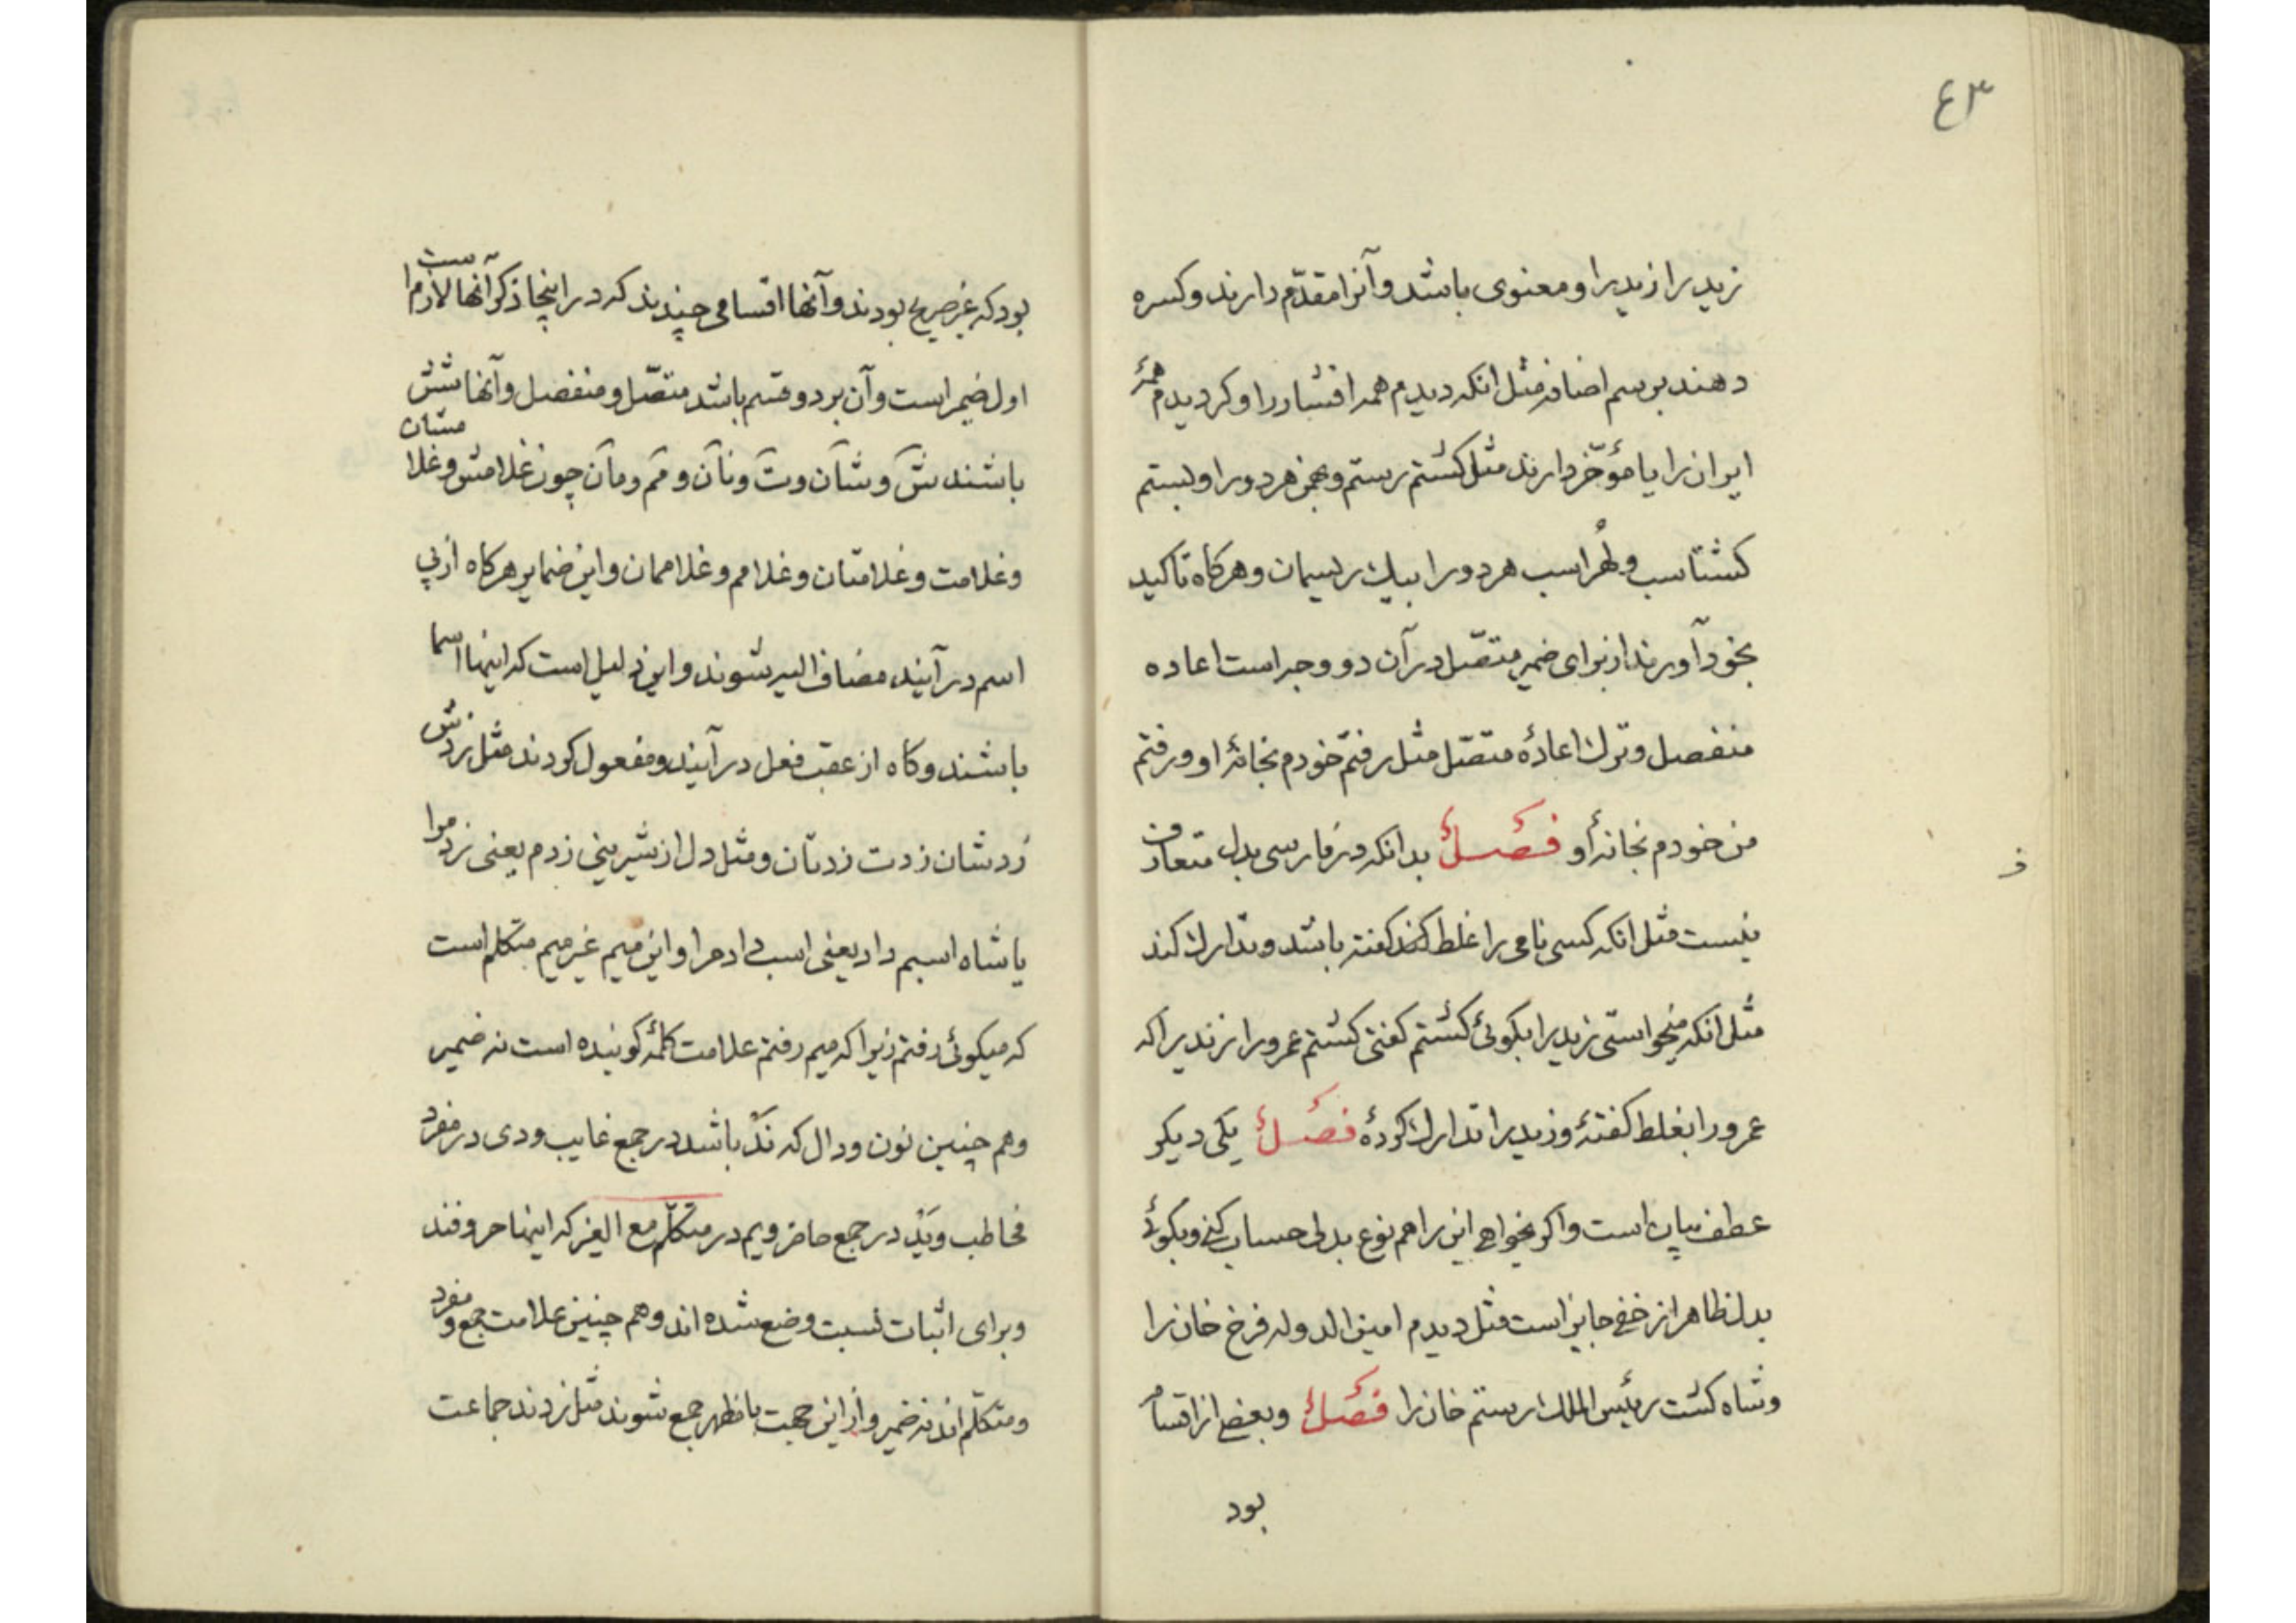 ٤٣
زید را زید را و معنوی باشد و آنرا مقدّم دارند و کسره
دهند برسم اضافه مثل انکه دیدم همه افشار را و کر دیدم همهٔ
ایران را یا مؤخّر دارند مثل کشتم رستم و بهمن هر دو را و بستم
کشتاسب و لُهراسب هر دو را بیک ریسیمان و هر کاه تاکید
بخود آورند از برای ضمیر متصّل در آن دو وجه است اعاده
منفصل و ترک اعادهٔ متصّل مثل رفتم خودم بخانهٔ او و رفتم
من خودم بخانهٔ او فصل بدانکه در فارسی بدل متعارف
نیست مثل انکه کسی نامی را غلط کفته باشد و تدارک کند
مثل انکه میخواستی زید را بکوئی کشتم کفتی کشتم عمرو را نه زید را که
عمرو را بغلط کفتهٔ و زید را تدارک کردهٔ فصل یکی دیکر
عطف بیان است و اکر بخواهی این را هم نوع بدلی حساب کنی و بکوئی
بدل ظاهر از خفی جایز است مثل دیدم امین الدوله فرخ خان را
و شاه کشت رئیس الملک رستم خان را فصل و بعضی از اقسام
بود
ف
بود که غیر صریح بودند و آنها اقسامی چندیند که در اینجا ذکر آنها لازم است
اول ضمیر است و آن بر دو قسم باشد متصّل و منفصل و آنها شش
باشند ش و شان و ت و تان و م و مان چون غلامش و غلامشان
و غلامت و غلامتان و غلامم و غلاممان و این ضمایر هر کاه از پی
اسم در آیند مضاف الیه شوند و این دلیل است که اینها اسما
باشند و کاه از عقب فعل در آیند و مفعول کردند مثل زدش
زدشان زدت زدتان و مثل دل از شیرینی زدم یعنی زد مرا
یا شاه اسبم داد یعنی اسب داد مرا و این میم غیر میم متکلم است
که میکوئی رفتم زیرا که میم رفتم علامت کلمهٔ کوینده است نه ضمیر
و هم چنین نون و دال که ند باشد در جمع غایب و دی در مفرد
مخاطب و ید در جمع حاضر و یم در متکلّم مع الغیر که اینها حروفند
و برای اثبات نسبت وضع شده اند و هم چنین علامت جمع و مفرد
و متکلّم اند نه ضمیر و از این جهت با مظهر جمع شوند مثل زدند جماعت